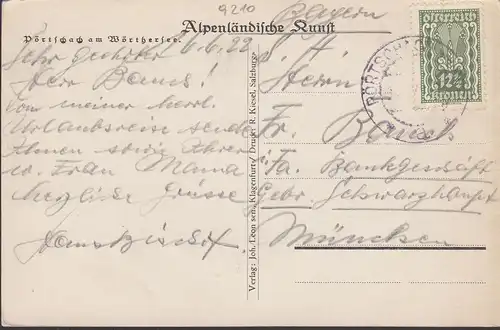 9210
Bayern
Alpenländische Kunst
Pörtschach am Wörthersee.
österreich
12½
kronen
PÖRTSCHACH
Sehr geehrter 6.6.22
Herr Bauch!
Von meiner herrl.
Urlaubsreise sende
Ihnen sowie Ihrer
w. Frau Mama
herzliche Grüsse
S. H.
Herrn
Fr. Bauch
i. Fa. Bankgeschäft
Gebr. Schwarzhaupt
München
Verlag: Joh. Leon sen., Klagenfurt / Druck: R. Kiesel, Salzburg